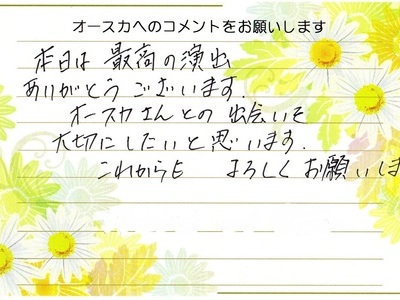 オースカへのコメントをお願いします
本日は 最高の演出
ありがとうございます.
オースカさんとの 出会いを
大切にしたいと思います.
これからも よろしくお願いしま